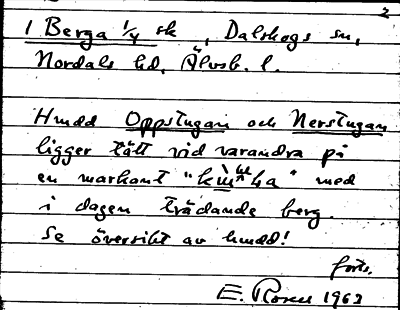 2
1 Berga 1/4 sk , Dalskogs sn,
Nordals hd, Älvsb. l.
Hmdd Oppstugan och Nerstugan
ligger tätt vid varandra på
en markant "ka" med
i dagen trädande berg.
Se översikt av hmdd!
forts.
E. Rosen 1963